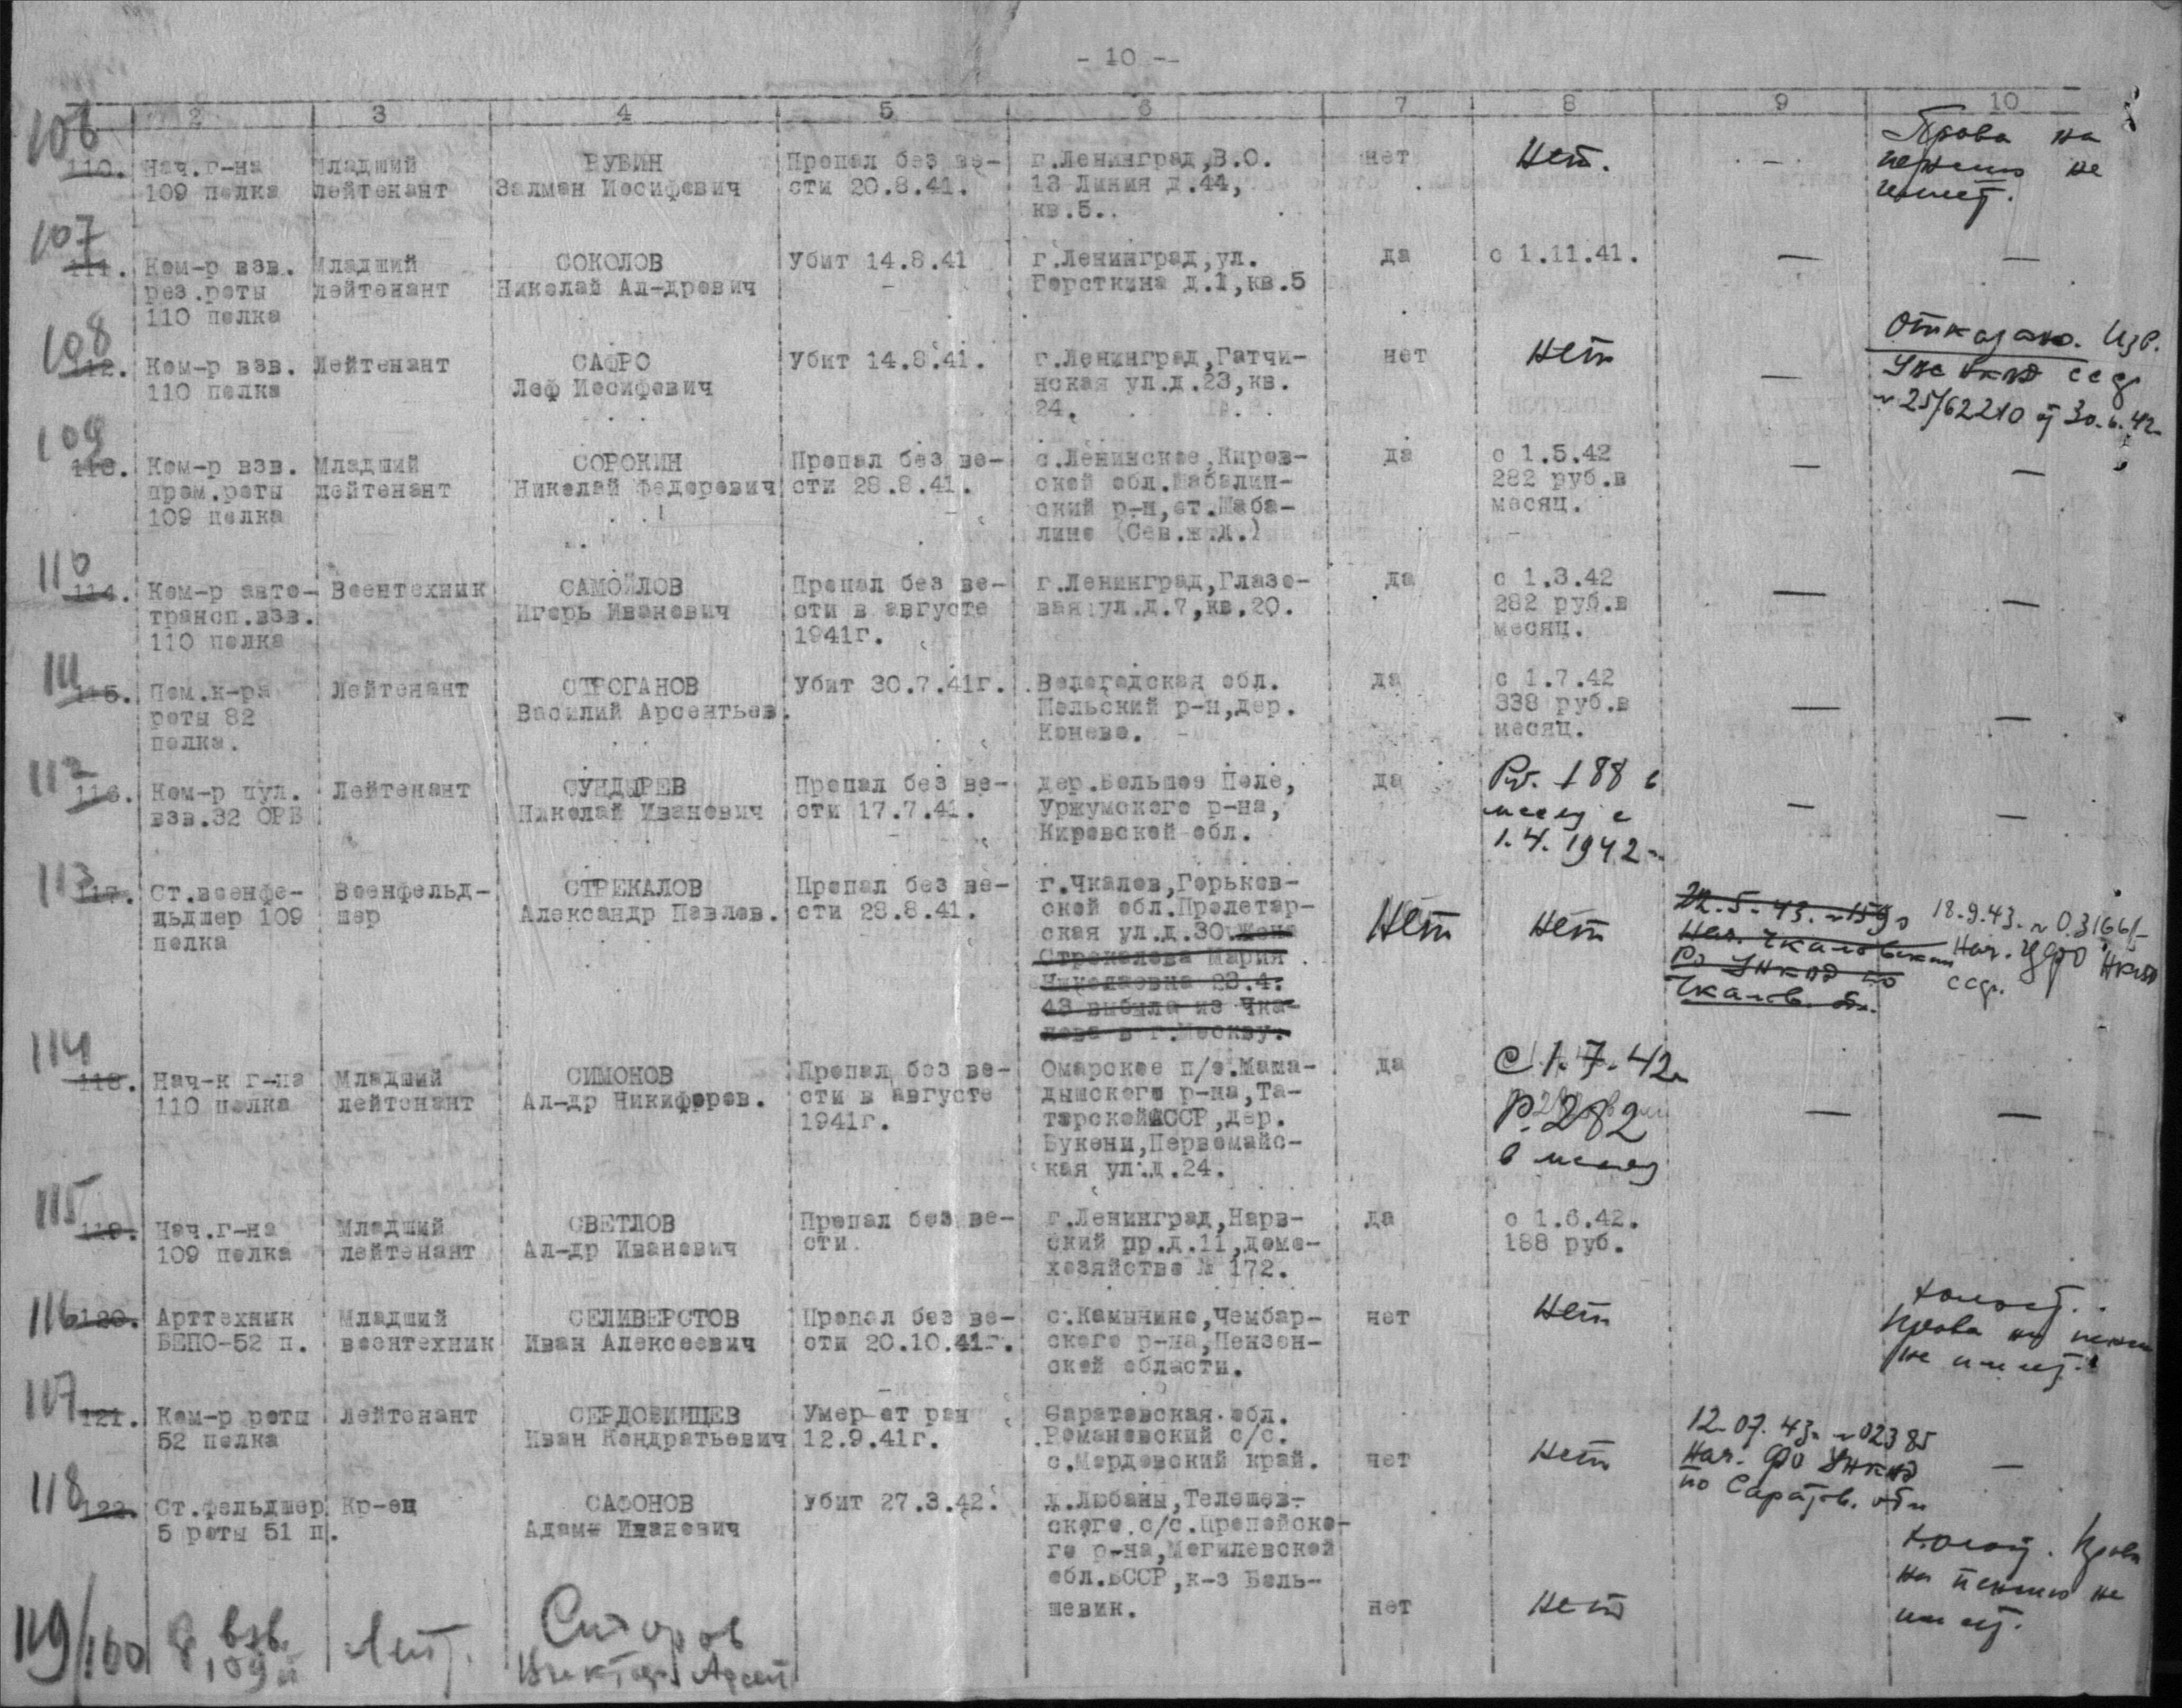 - 10 -
2 3 4 5 6 7 8 9 10
106
110. Нач.г-на Младший РУБИН Пропал без ве- г.Ленинград,В.О. нет Нет. - Права на
109 полка лейтенант Залман Иосифович сти 20.8.41. 13 Линия д.44, пенсию не
кв.5. имеет.
107
111. Ком-р взв. Младший СОКОЛОВ Убит 14.8.41 г.Ленинград,ул. да с 1.11.41. — —
рез.роты лейтенант Николай Ал-дрович Горсткина д.1,кв.5
110 полка
108
112. Ком-р взв. Лейтенант САФРО Убит 14.8.41. г.Ленинград,Гатчи- нет Нет — Отказано. Изв.
110 полка Леф Иосифович нская ул.д.23,кв. НКВД СССР
24. № 25/62210 от 30.6.42
109
113. Ком-р взв. Младший СОРОКИН Пропал без ве- с.Ленинское,Киров- да с 1.5.42 — —
пром.роты лейтенант Николай Федорович сти 28.8.41. ской обл.Шабалин- 282 руб.в
109 полка ский р-н,ст.Шаба- месяц.
лино (Сев.ж.д.)
110
114. Ком-р авто- Воентехник САМОЙЛОВ Пропал без ве- г.Ленинград,Глазо- да с 1.3.42 — —
трансп.взв. Игорь Иванович сти в августе вая ул.д.7,кв.20. 282 руб.в
110 полка 1941г. месяц.
111
115. Пом.к-ра Лейтенант СТРОГАНОВ Убит 30.7.41г. Вологодская обл. да с 1.7.42 — —
роты 82 Василий Арсентьев. Шольский р-н,дер. 338 руб.в
полка. Конево. месяц.
112
116. Ком-р пул. Лейтенант СУНДЫРЕВ Пропал без ве- дер.Большое Поле, да Руб. 188 в — —
взв.32 ОРБ Николай Иванович сти 17.7.41. Уржумского р-на, месяц с
Кировской обл. 1.4.1942
113
117. Ст.военфе- Военфельд- СТРЕКАЛОВ Пропал без ве- г.Чкалов,Горьков- Нет Нет 22.5.43. № 1590 18.9.43. № 031661
льдшер 109 шер Александр Павлов. сти 28.8.41. ской обл.Пролетар- Нач. Чкаловским Нач. ЦФО НКВД
полка ская ул.д.30.Жена РО УНКВД по СССР.
Стрекалова Мария Чкалов. обл.
Николаевна 23.4.
43 выбыла из Чка-
лова в г.Москву.
114
118. Нач-к г-на Младший СИМОНОВ Пропал без ве- Омарское п/о.Мама- да С 1.7.42 — —
110 полка лейтенант Ал-др Никифоров. сти в августе дышского р-на,Та- Р. 282
1941г. тарскойАССР,дер. в месяц
Букени,Первомайс-
кая ул.д.24.
115
119. Нач.г-на Младший СВЕТЛОВ Пропал без ве- г.Ленинград,Нарв- да с 1.6.42.
109 полка лейтенант Ал-др Иванович сти. ский пр.д.11,домо- 188 руб.
хозяйство № 172.
116
120. Арттехник Младший СЕЛИВЕРСТОВ Пропал без ве- с.Камынино,Чембар- нет Нет Холост.
БЕПО-52 п. воентехник Иван Алексеевич сти 20.10.41г. ского р-на,Пензен- Права на пенсию
ской области. не имеет.
117
121. Ком-р роты Лейтенант СЕРДОВИНЦЕВ Умер от ран Саратовская обл. 12.07.43. № 02385
52 полка Иван Кондратьевич 12.9.41г. Романовский с/с. Нач. ФО УНКВД —
с.Мордовский край. нет Нет по Саратов. обл
118
122. Ст.фельдшер Кр-ец САФОНОВ Убит 27.3.42. д.Любаны,Телешев-
5 роты 51 п. Адам Иванович ского с/с.Пропойско- Холост. Права
го р-на,Могилевской на пенсию не
обл.БССР,к-з Боль- имеет.
шевик. нет Нет
119/160 взв. Лейт. Сидоров
109 п Виктор